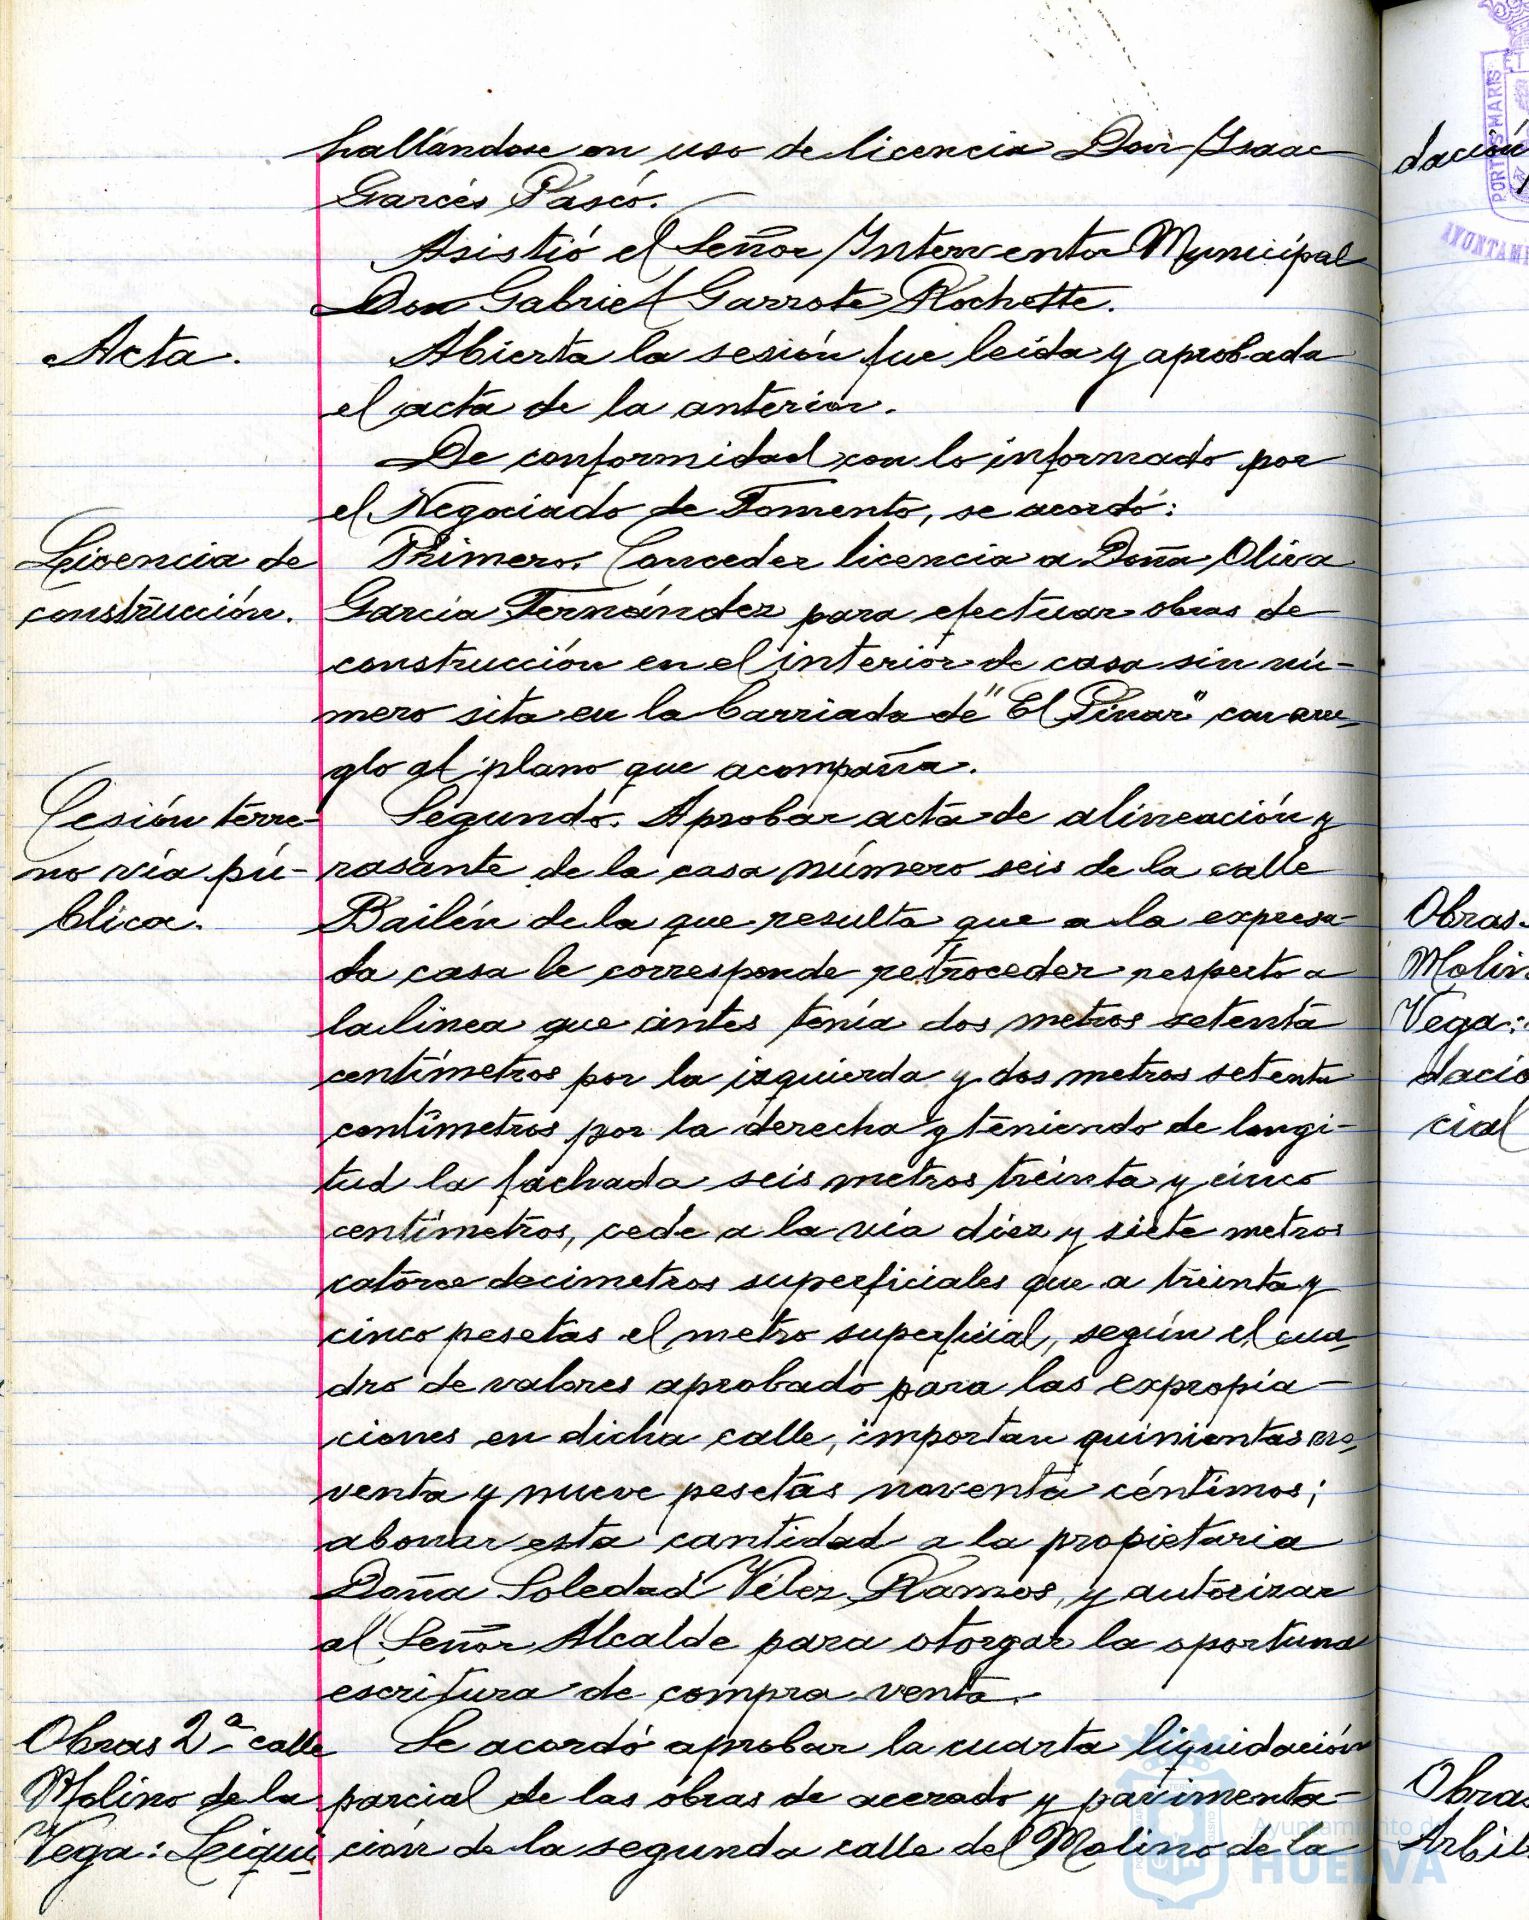 hallándose en uso de licencia Don Isaac
Garcés Pascó.
Asistió el Señor Interventor Municipal
Don Gabriel Garrote Rochette.
Acta.
Abierta la sesión fue leída y aprobada
el acta de la anterior.
De conformidad con lo informado por
el Negociado de Fomento, se acordó:
Licencia de
construcción.
Primero. Conceder licencia a Doña Oliva
García Fernández para efectuar obras de
construcción en el interior de casa sin nú-
mero sita en la barriada de "El Pinar" con arre-
glo al plano que acompaña.
Cesión terre-
no vía pú-
blica.
Segundo. Aprobar acta de alineación y
rasante de la casa número seis de la calle
Bailén de la que resulta que a la expresa-
da casa le corresponde retroceder respecto a
la línea que antes tenía dos metros setenta
centímetros por la izquierda y dos metros setenta
centímetros por la derecha y teniendo de longi-
tud la fachada seis metros treinta y cinco
centímetros, cede a la vía diez y siete metros
catorce decímetros superficiales que a treinta y
cinco pesetas el metro superficial, según el cua-
dro de valores aprobado para las expropia-
ciones en dicha calle, importan quinientas no-
venta y nueve pesetas noventa céntimos;
abonar esta cantidad a la propietaria
Doña Soledad Vélez Ramos, y autorizar
al Señor Alcalde para otorgar la oportuna
escritura de compra venta.
Obras 2ª calle
Molino de la
Vega: Liqui-
Se acordó aprobar la cuarta liquidación
parcial de las obras de acerado y pavimenta-
ción de la segunda calle del Molino de la
dación
Obras
Molin
Vega:
dacio
cial
Obras
Arbit
PORTUS MARIS
AYUNTAMI
Ayuntamiento de
HUELVA